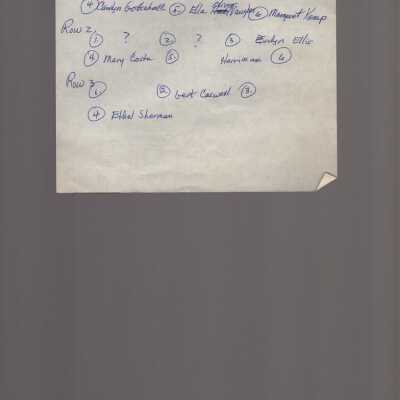 ④ Gottschall ⑤ Ella Taylor ⑥ Margaret Kemp
Row 2,
① ? ② ? ③ Evelyn Ellis
④ Mary Costa ⑤ Harriman ⑥
Row 3
① ② Gert Caswell ③
④ Ethel Sherman